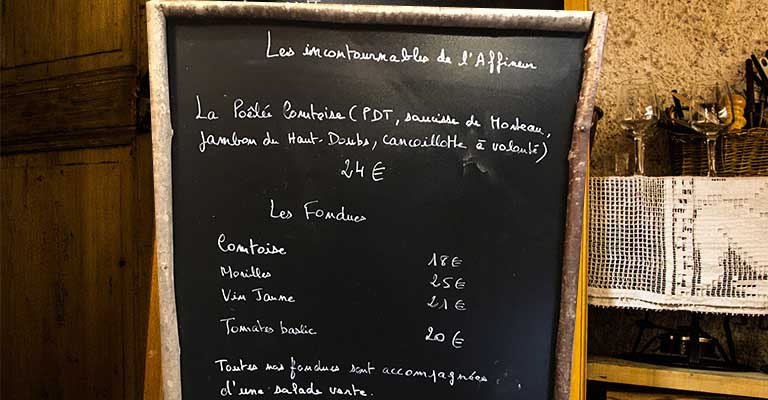 Les incontournables de l'Affineur
La Poêlée Comtoise (PDT, saucisse de Morteau,
Jambon du Haut-Doubs, cancoillotte à volonté)
24€
Les Fondues
Comtoise 18€
Morilles 25€
Vin Jaune 21€
Tomates basilic 20€
Toutes nos fondues sont accompagnées
d'une salade verte.